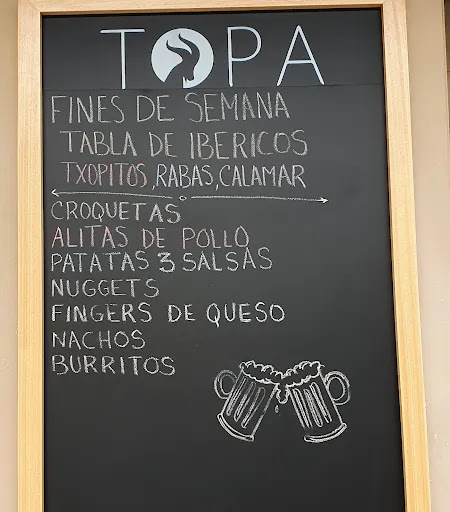 TOPA
FINES DE SEMANA
TABLA DE IBERICOS
TXOPITOS, RABAS, CALAMAR
CROQUETAS
ALITAS DE POLLO
PATATAS 3 SALSAS
NUGGETS
FINGERS DE QUESO
NACHOS
BURRITOS